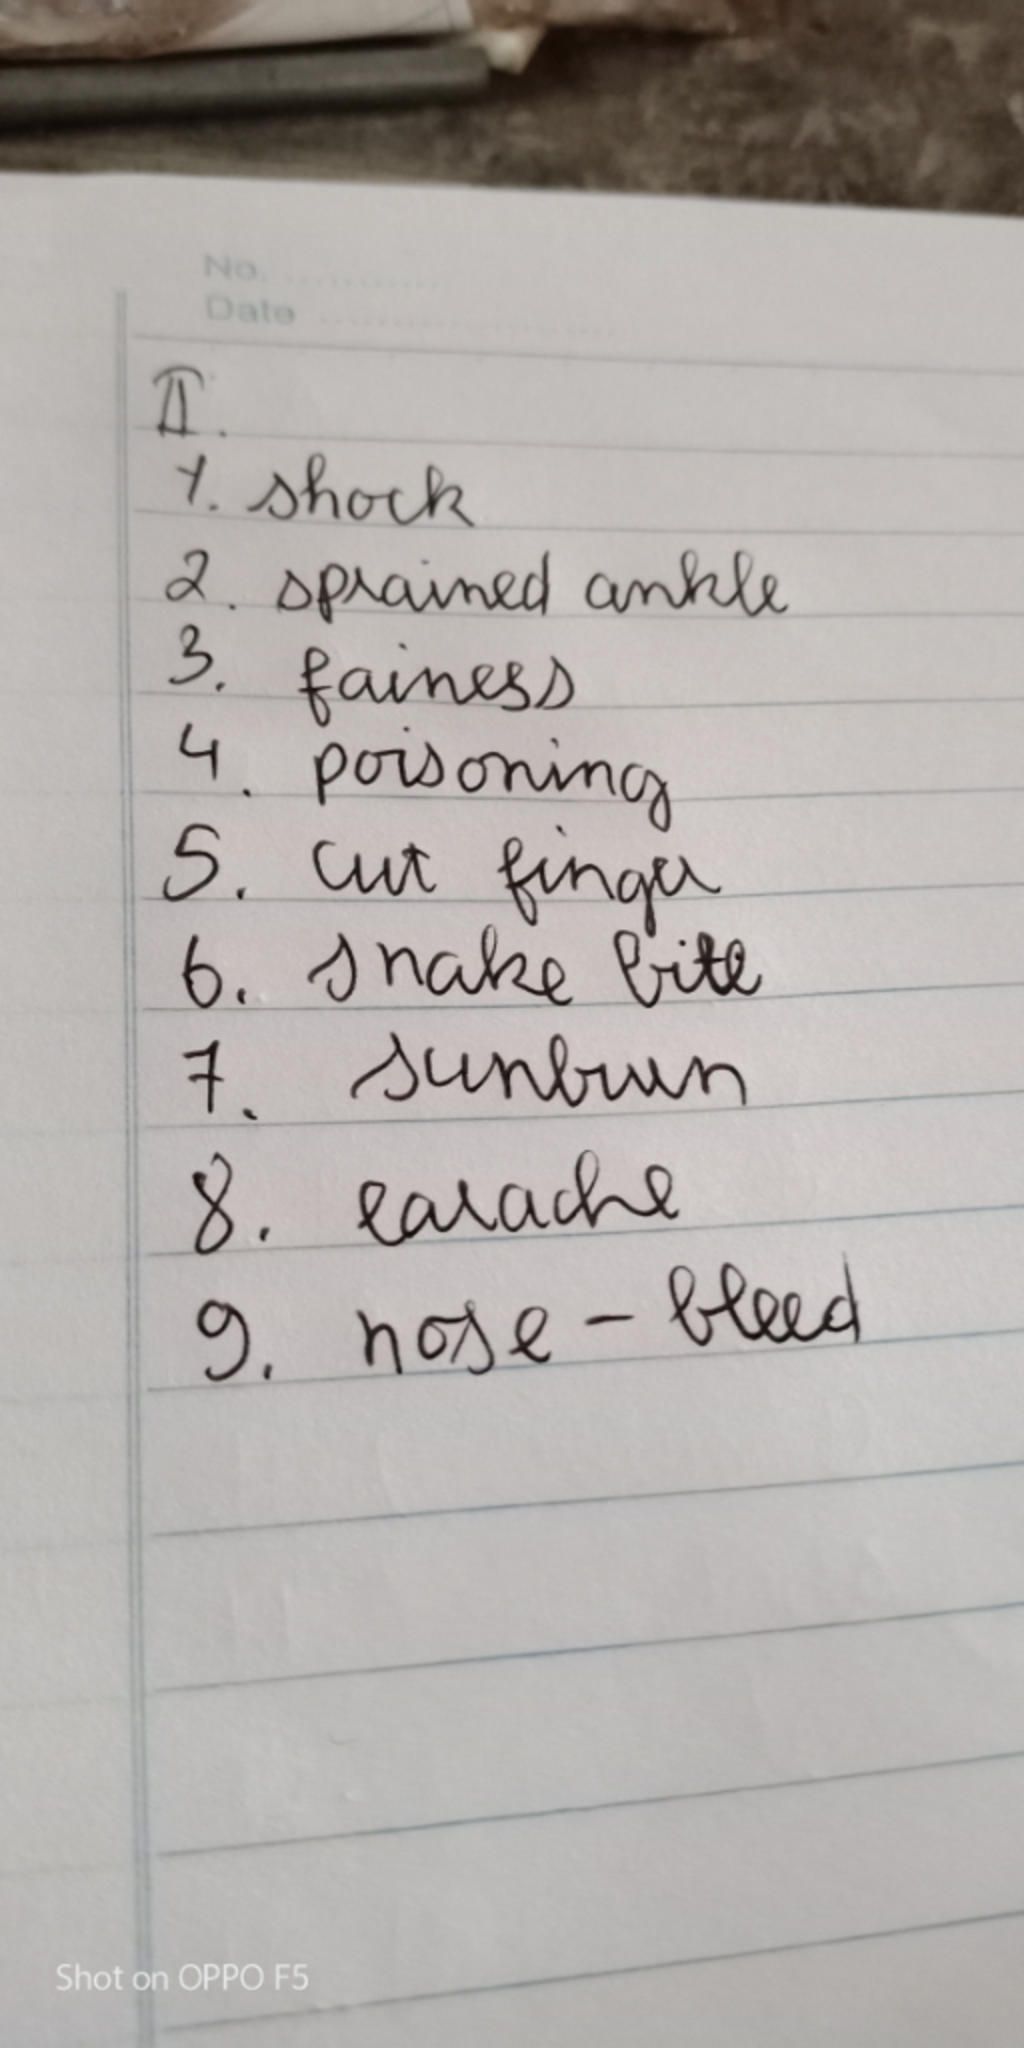 No. ...........
Date .......................
II.
1. shock
2. sprained ankle
3. fainess
4. poisoning
5. cut finger
6. snake bite
7. sunbrun
8. earache
9. nose - bleed
Shot on OPPO F5